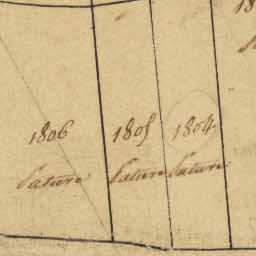 18
1806 1805 1804
Pature Pature Pature